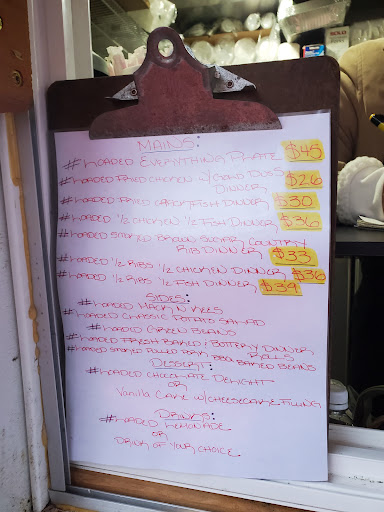 MAINS:
#LOADED EVERYTHING PLATE $45
#LOADED FRIED CHICKEN W/ GOOD DOSS DINNER $26
#LOADED FRIED CATFISH DINNER $30
#LOADED ½ CHICKEN ½ FISH DINNER $36
#LOADED SMOKED BROWN SUGAR COUNTRY
RIB DINNER $33
#LOADED ½ RIBS ½ CHICKEN DINNER $36
#LOADED ½ RIBS ½ FISH DINNER $39
SIDES:
#LOADED MACK N KEES
#LOADED CLASSIC POTATO SALAD
#LOADED GREEN BEANS
#LOADED FRESH BAKED / BUTTERY DINNER
ROLLS
#LOADED SMOKED PULLED PORK BBQ BAKED BEANS
DESSERT:
#LOADED CHOCOLATE DELIGHT
OR
Vanilla Cake W/ CHEESECAKE FILLING
DRINKS:
#LOADED LEMONADE
OR
DRINK OF YOUR CHOICE